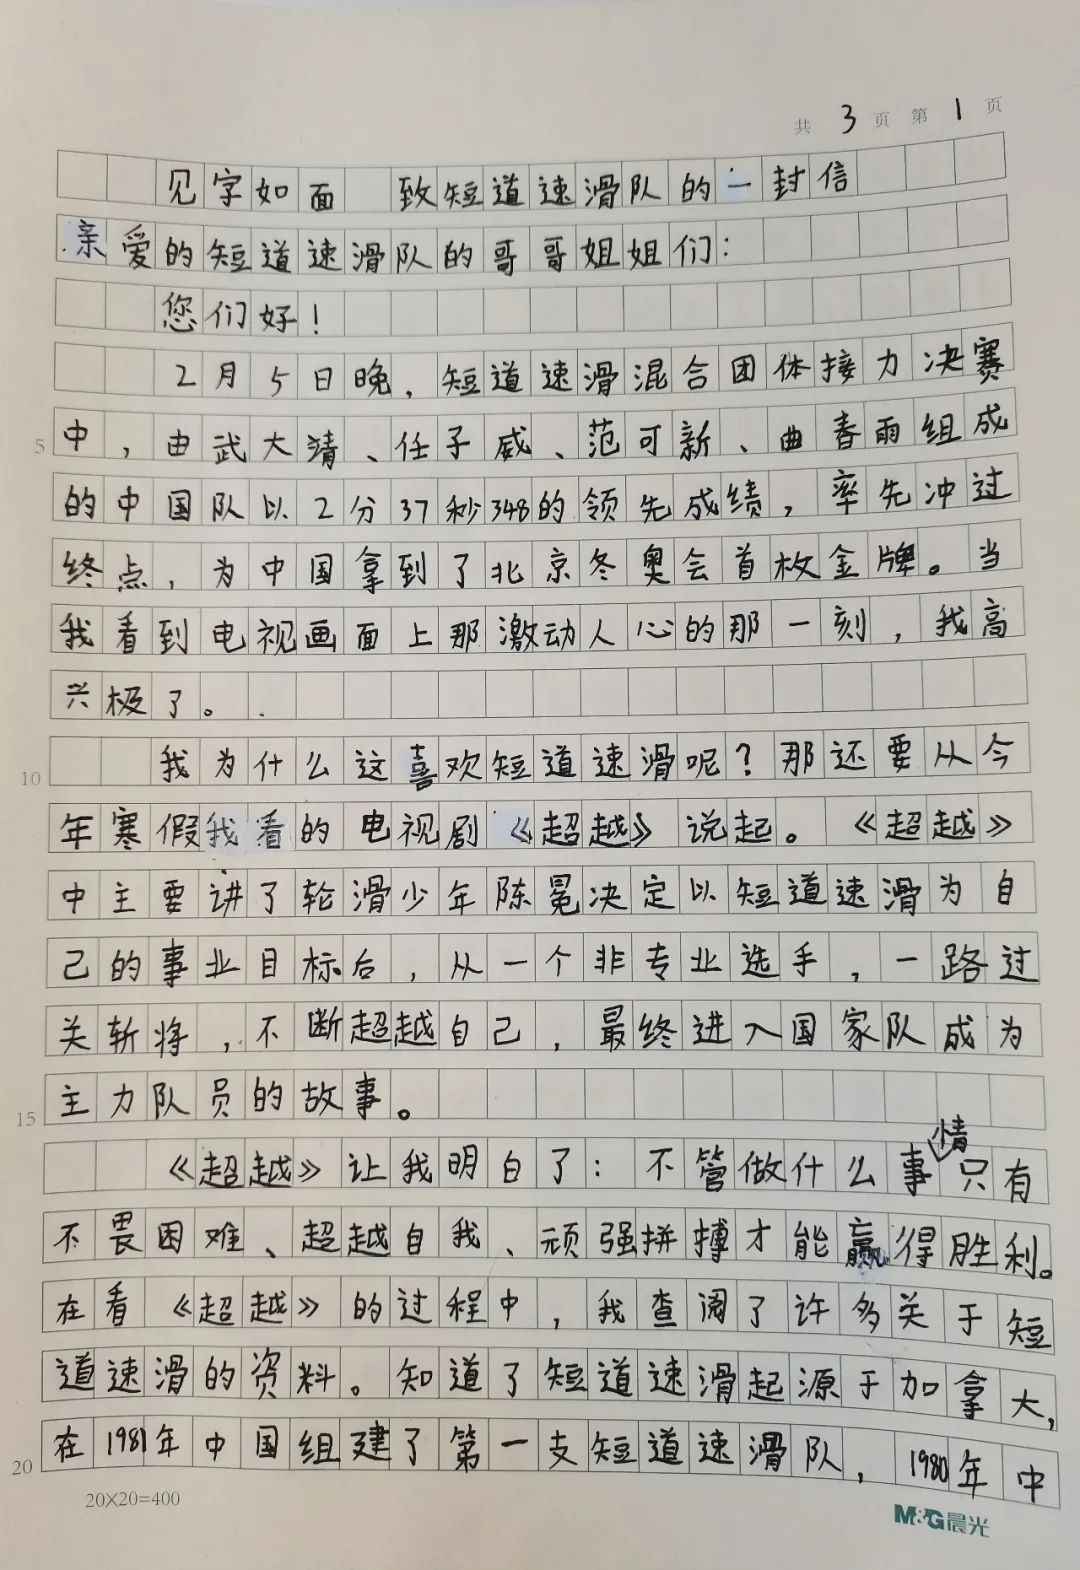 共 3 页 第 1 页
见字如面 致短道速滑队的一封信
亲爱的短道速滑队的哥哥姐姐们：
您们好！
2月5日晚，短道速滑混合团体接力决赛
5 中，由武大猜、任子威、范可新、曲春雨组成
的中国队以2分37秒348的领先成绩，率先冲过
终点，为中国拿到了北京冬奥会首枚金牌。当
我看到电视画面上那激动人心的那一刻，我高
兴极了。
10 我为什么这喜欢短道速滑呢？那还要从今
年寒假我看的电视剧《超越》说起。《超越》
中主要讲了轮滑少年陈冕决定以短道速滑为自
己的事业目标后，从一个非专业选手，一路过
关斩将，不断超越自己，最终进入国家队成为
15 主力队员的故事。
《超越》让我明白了：不管做什么事情只有
不畏困难、超越自我、顽强拼搏才能赢得胜利。
在看《超越》的过程中，我查阅了许多关于短
道速滑的资料。知道了短道速滑起源于加拿大，
20 在1981年中国组建了第一支短道速滑队，1980年中
20X20=400
M&G晨光